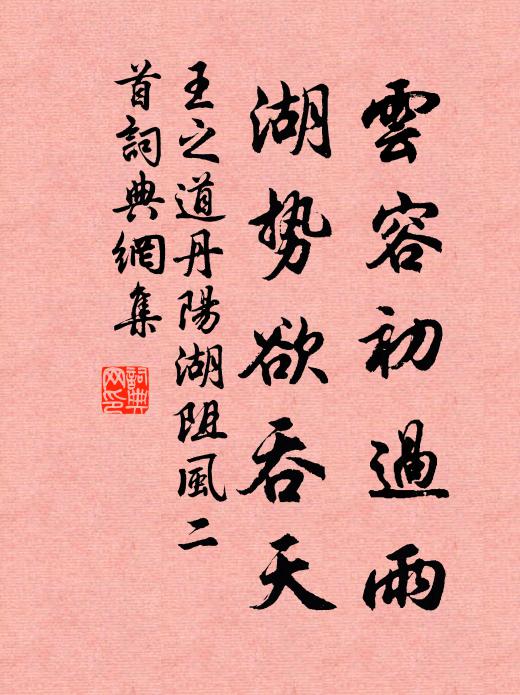 雲容初過雨
湖势欲吞天
王之道丹陽湖阻風二
首詞典網集
詞典網印